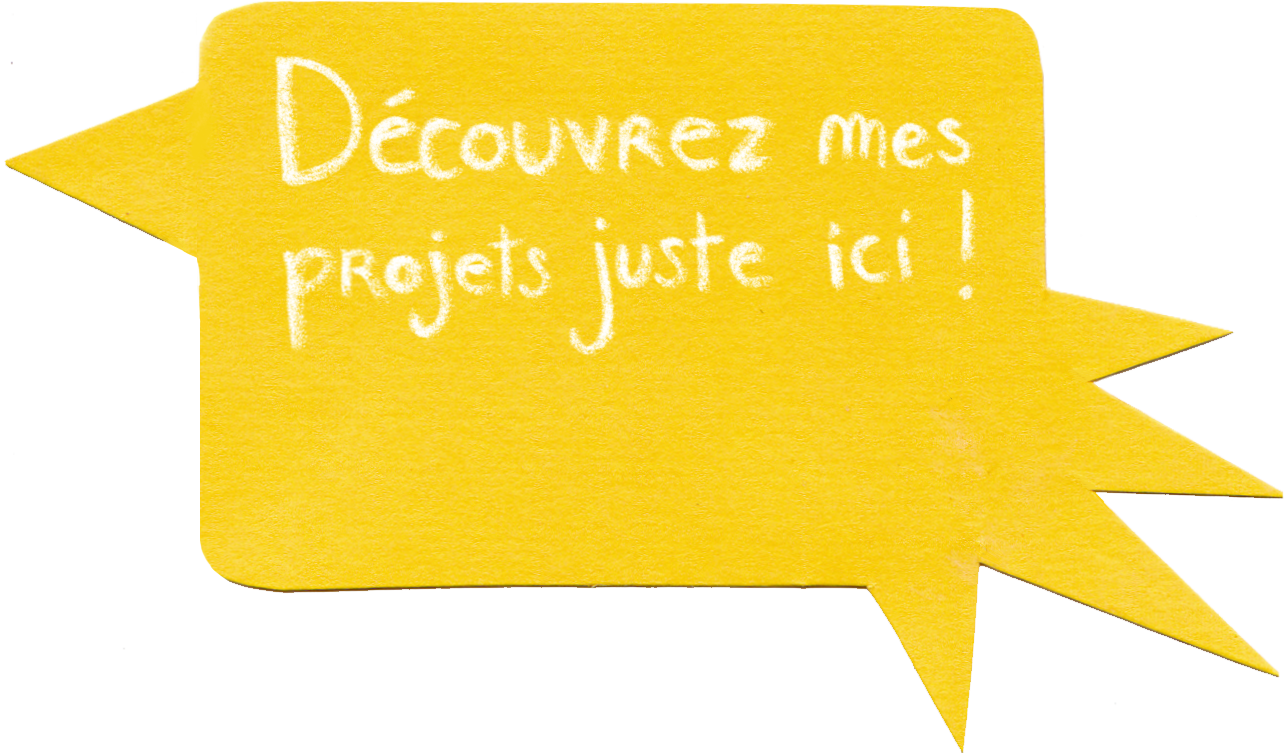 Découvrez mes
projets juste ici !